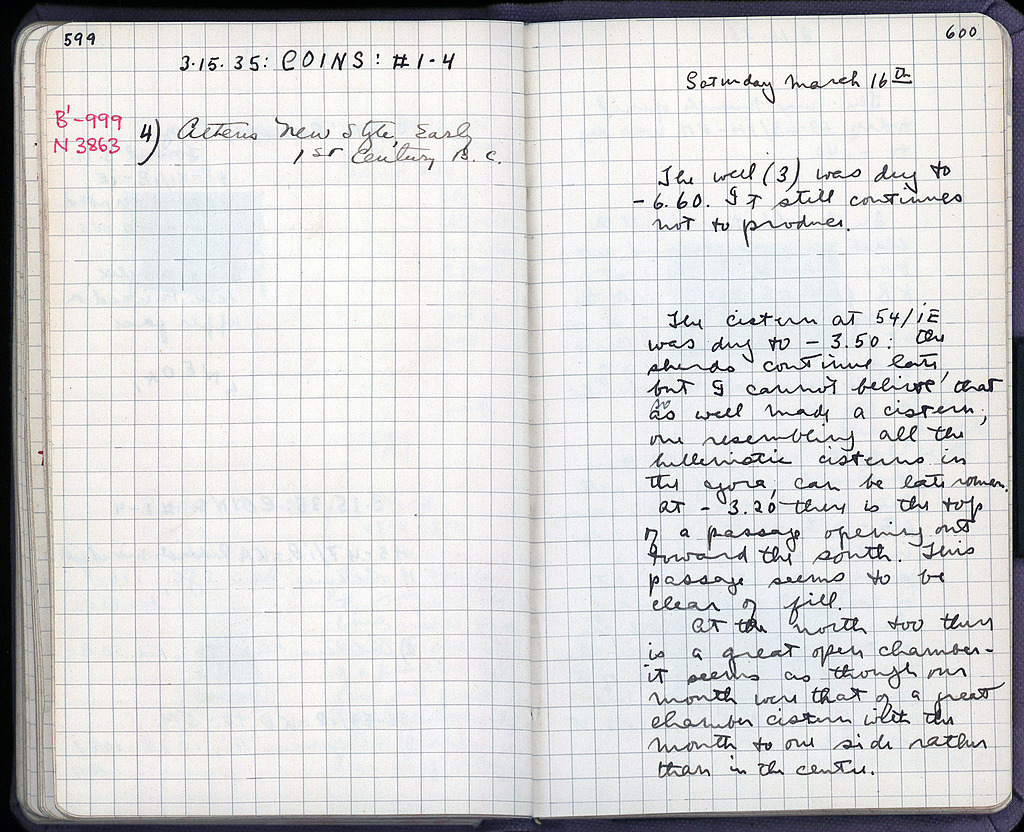 599
3·15·35: COINS: #1-4
B'-999
N 3863
4) Athens New Style, Early
1st Century B.C.
600
Saturday March 16th
The well (3) was dug to
- 6.60. It still continues
not to produce.
The cistern at 54/ΙΕ
was dug to - 3.50: the
sherds continue late,
but I cannot believe that
so
as well made a cistern,
one resembling all the
hellenistic cisterns in
the agora, can be late roman.
At - 3.20 there is the top
of a passage opening out
toward the south. This
passage seems to be
clear of fill.
At the north too there
is a great open chamber-
it seems as though our
mouth were that of a great
chamber cistern with the
mouth to one side rather
than in the centre.